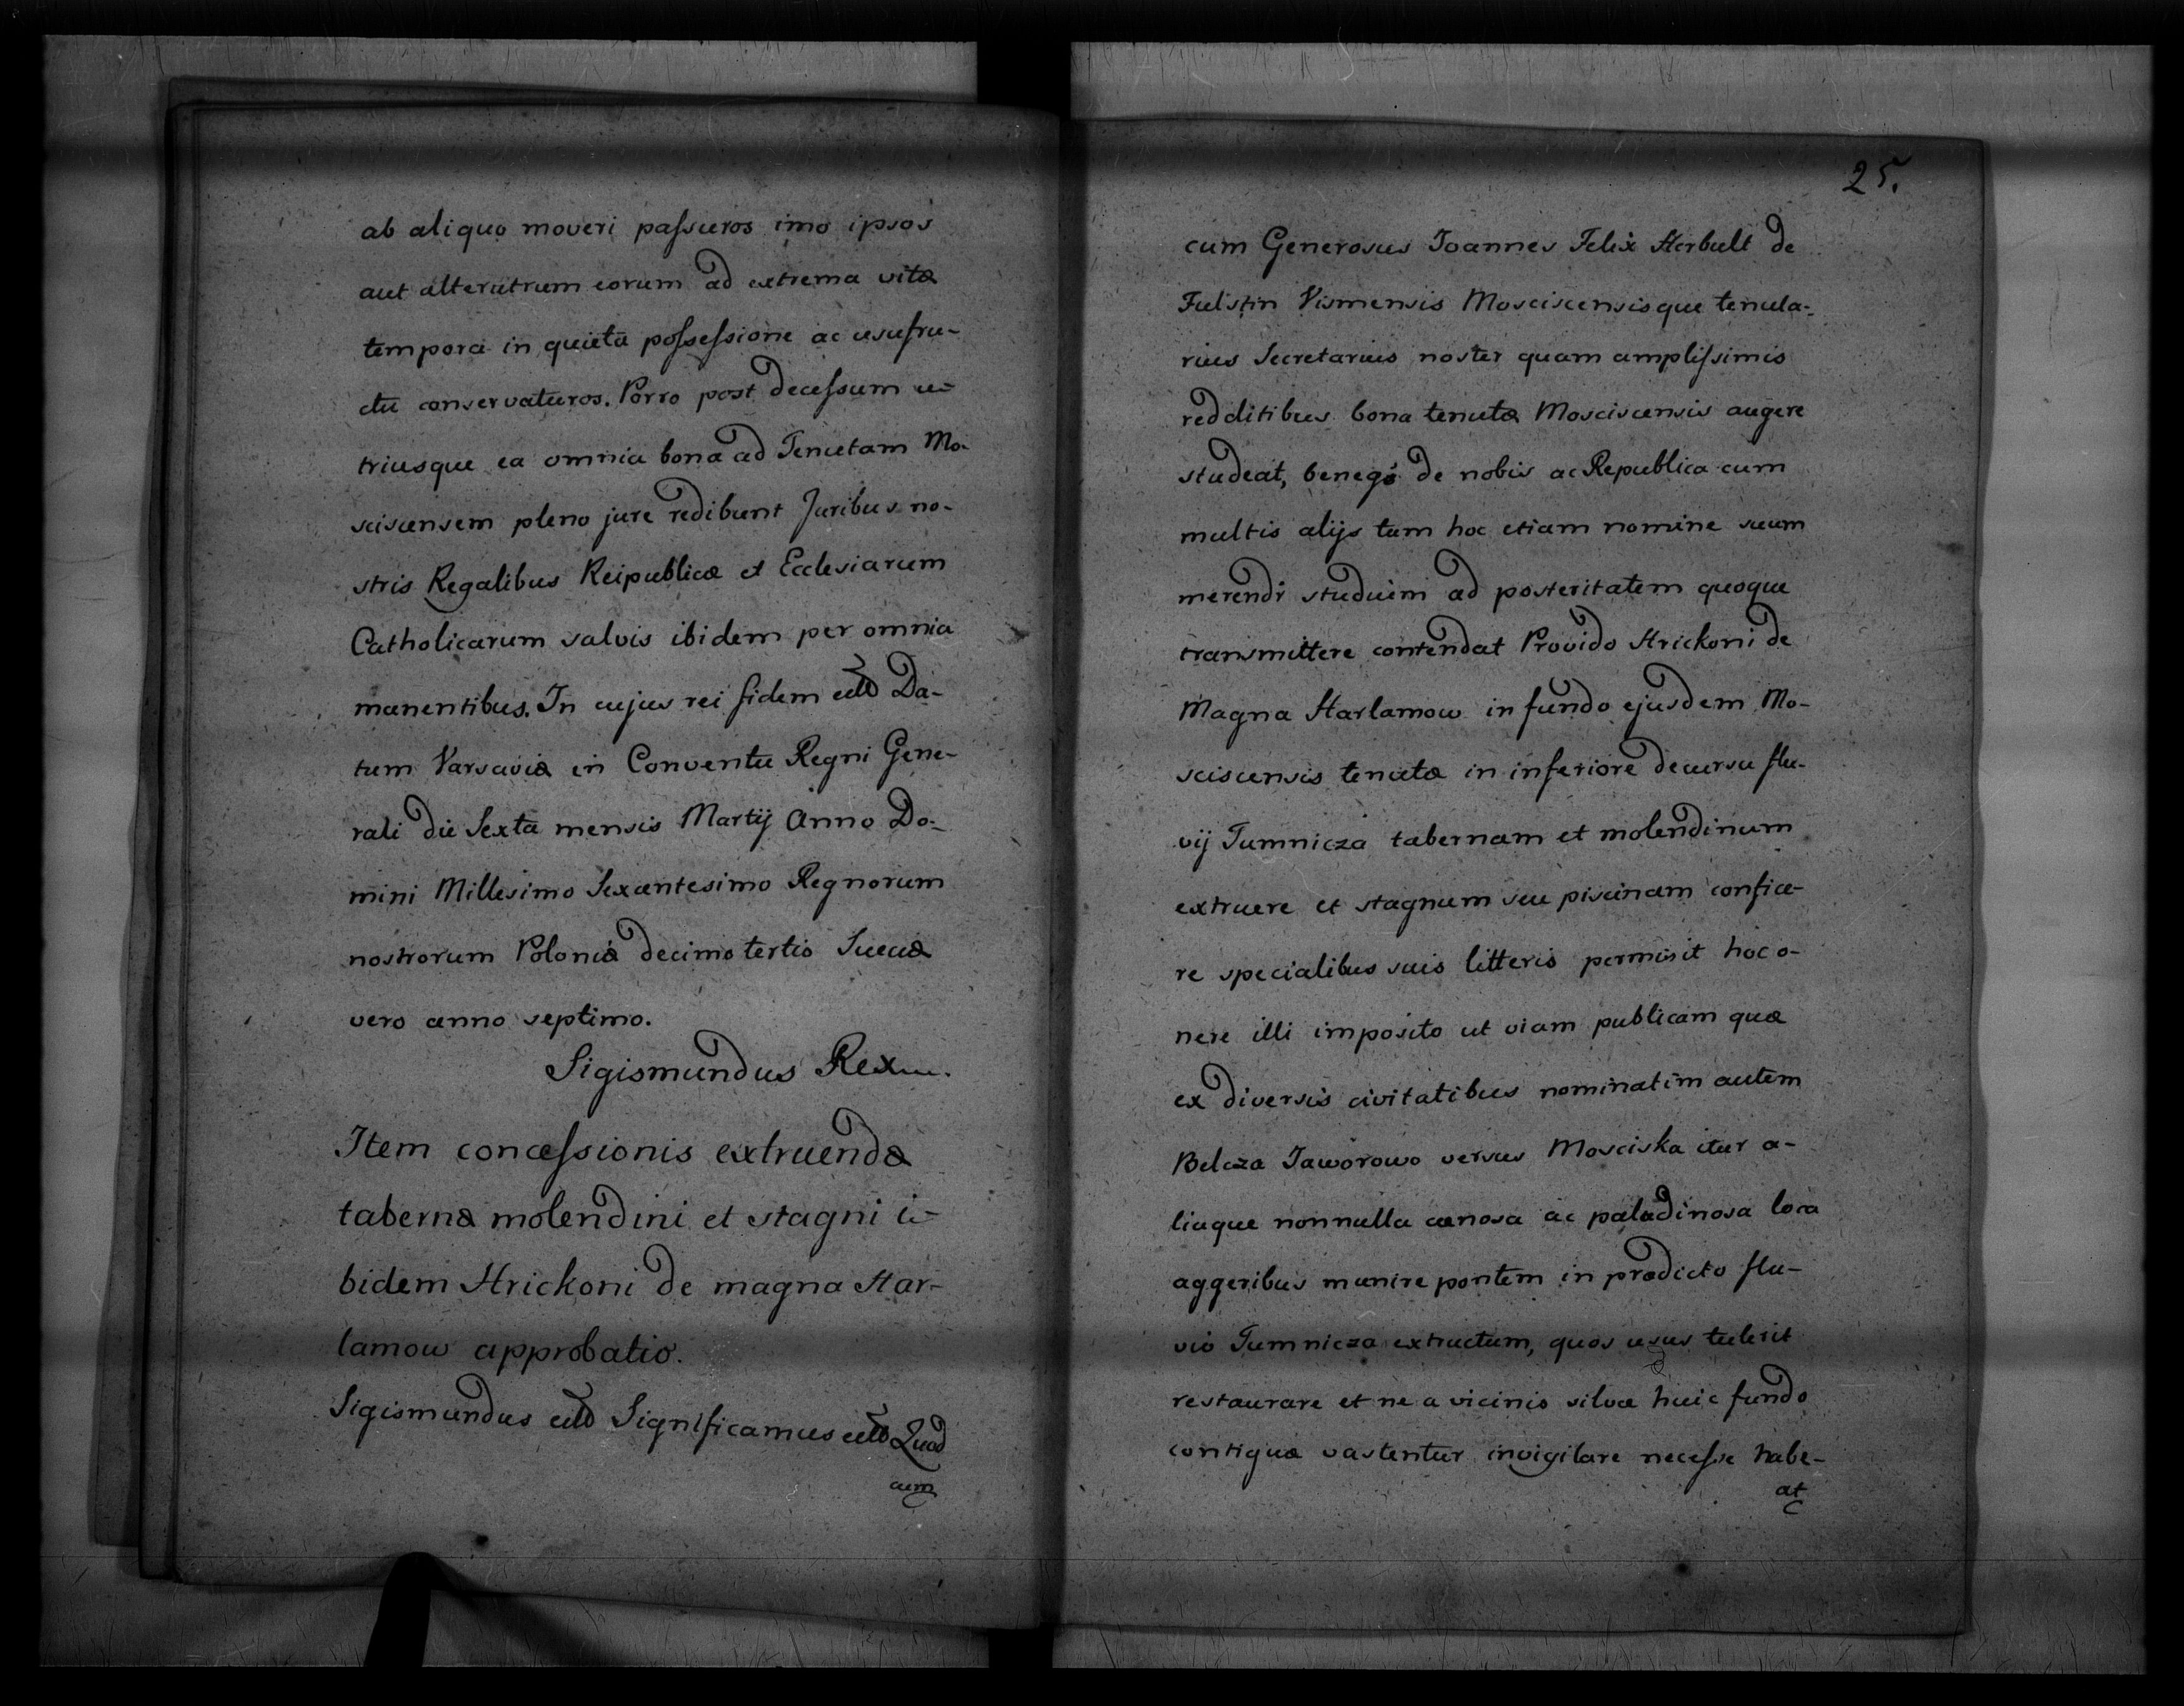 ab aliquo moveri paſsuros imo ipsos
aut alterutrum eorum ad extrema vitæ
tempora in quieta poſseſsione ac usufru-
ctu conservaturos. Porro post deceſsum u-
triusque ea omnia bona ad Tenutam Mo-
sciscensem pleno jure redibunt Juribus no-
stris Regalibus Reipublicæ et Ecclesiarum
Catholicarum salvis ibidem per omnia
manentibus. In cujus rei fidem Da-
tum Varsaviæ in Conventu Regni Gene-
rali die Sexta mensis Martij Anno Do-
mini Millesimo Sexcentesimo Regnorum
nostrorum Poloniæ decimo tertio Sueciæ
vero anno septimo.
Sigismundus Rex
Item conceſsionis extruendæ
tabernæ molendini et stagni i-
bidem Hrickoni de magna Har-
lamow approbatio.
Sigismundus Significamus Quod
cum
25.
cum Generosus Joannes Felix Herbult de
Fulstin Vismensis Mosciscensisque tenuta-
rius Secretarius noster quam ampliſsimis
redditibus bona tenutæ Mosciscensis augere
studeat, de nobis ac Republica cum
multis alijs tum hoc etiam nomine suum
merendi studuim ad posteritatem quoque
transmittere contendat Provido Hrickoni de
Magna Harlamow in fundo ejusdem Mo-
sciscensis tenutæ in inferiore decursu flu-
vij Tumnicza tabernam et molendinum
extruere et stagnum seu piscinam confice-
re specialibus suis litteris permisit hoc o-
nere illi imposito ut viam publicam quæ
ex diversis civitatibus nominatim autem
Belcza Jaworowo versus Mosciska itur a-
liaque nonnulla cænosa ac paludinosa loca
aggeribus munire pontem in prædicto flu-
vio Tumnicza extructum, quos usus tulerit
restaurare et ne a vicinis silvæ huic fundo
contiguæ vastentur invigilare neceſse habe-
at